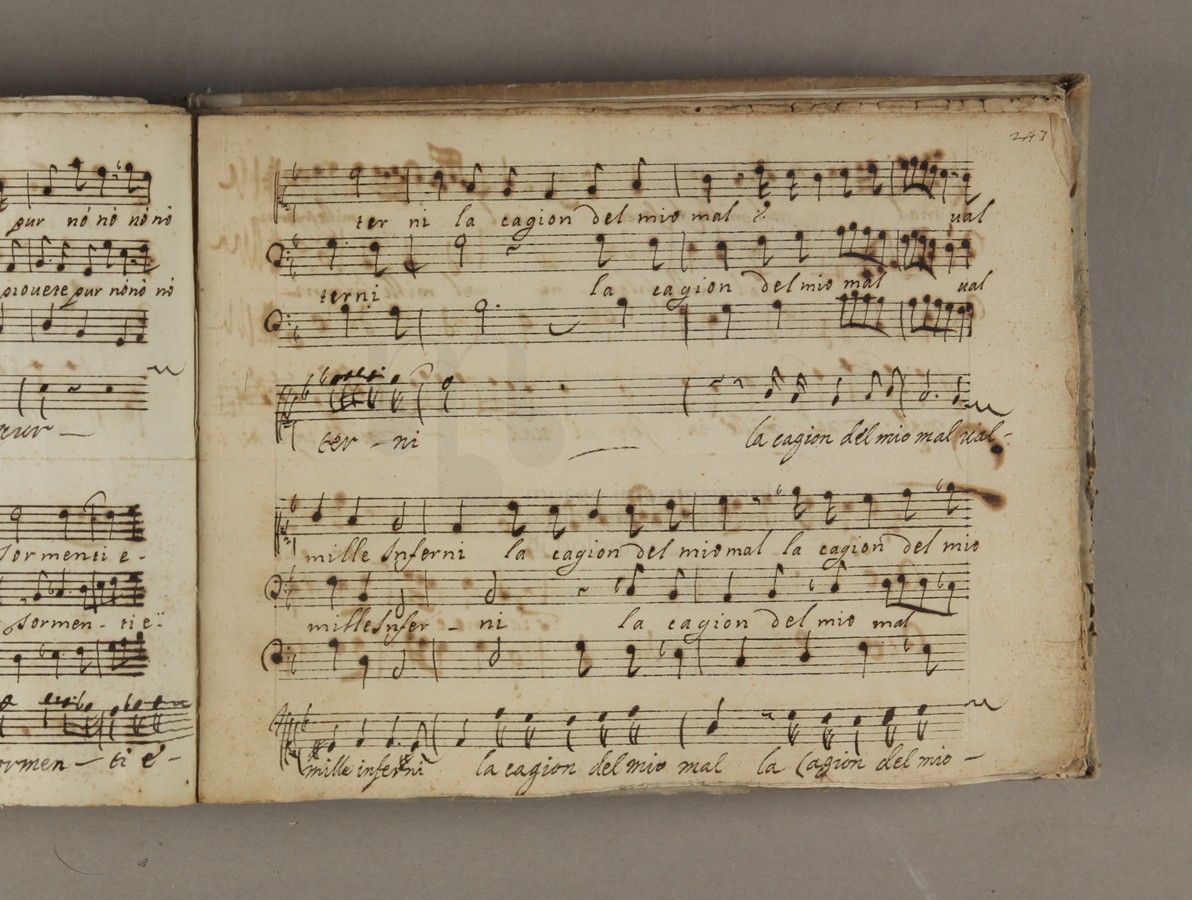 pur nò nò nò nò
prouete pur nò nò nò
Tormenti e-
Tormen-ti e:
ormen - ti è -
243
ter ni la cagion del mio mal ual
terni la cagion del mio mal ual
ter - ni la cagion del mio mal ual-
mille Inferni la cagion del mio mal la cagion del mio
mille Infer - ni la cagion del mio mal
mille inferni la cagion del mio mal la cagion del mio -